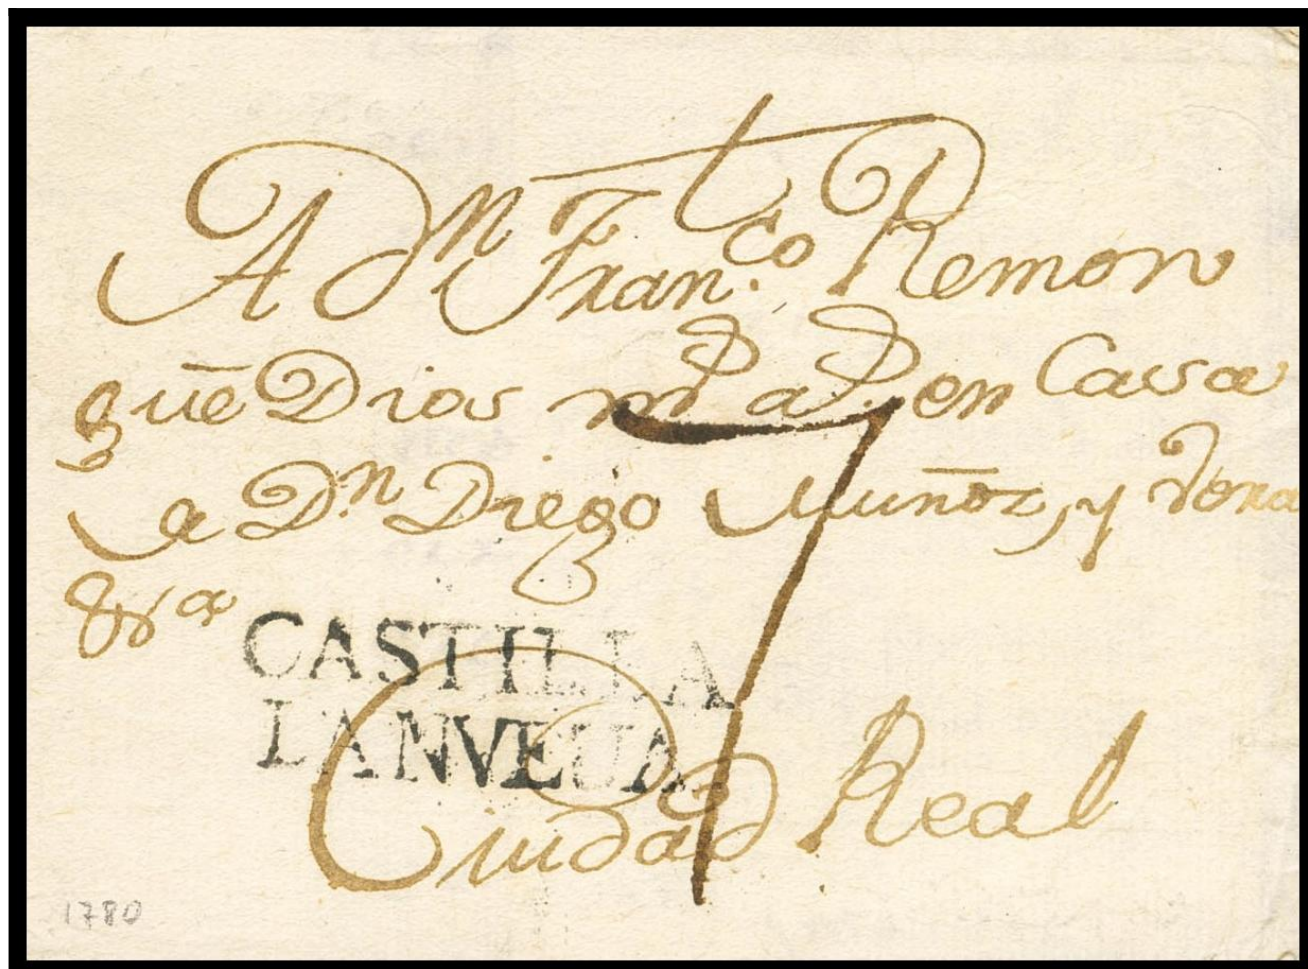 A Dn Franco Remon
gue Dios ms as en Casa
de Dn Diego Muñoz, y Vera
CASTILLA
LANVEUA
7
Ciudad Real
1780